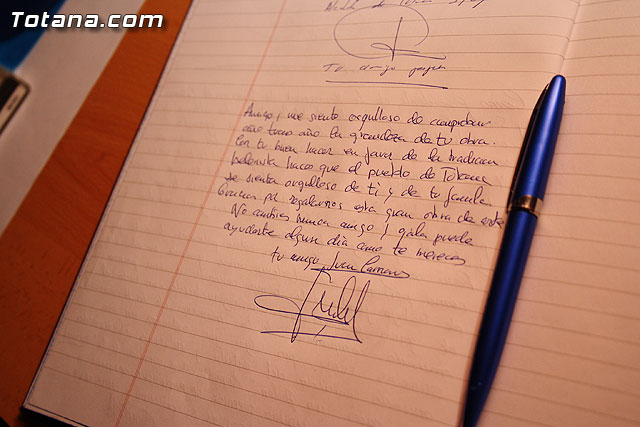 Totana.com
de
Tu amigo
Amigo, me siento orgulloso de comprobar
año tras año la grandeza de tu obra.
Con tu buen hacer en favor de la tradicion
belenista haces que el pueblo de Totana
se sienta orgulloso de ti y de tu familia
Gracias por regalarnos esta gran obra de arte
No cambies nunca amigo y ojala pueda
ayudarte algun dia como te mereces
tu amigo Juan